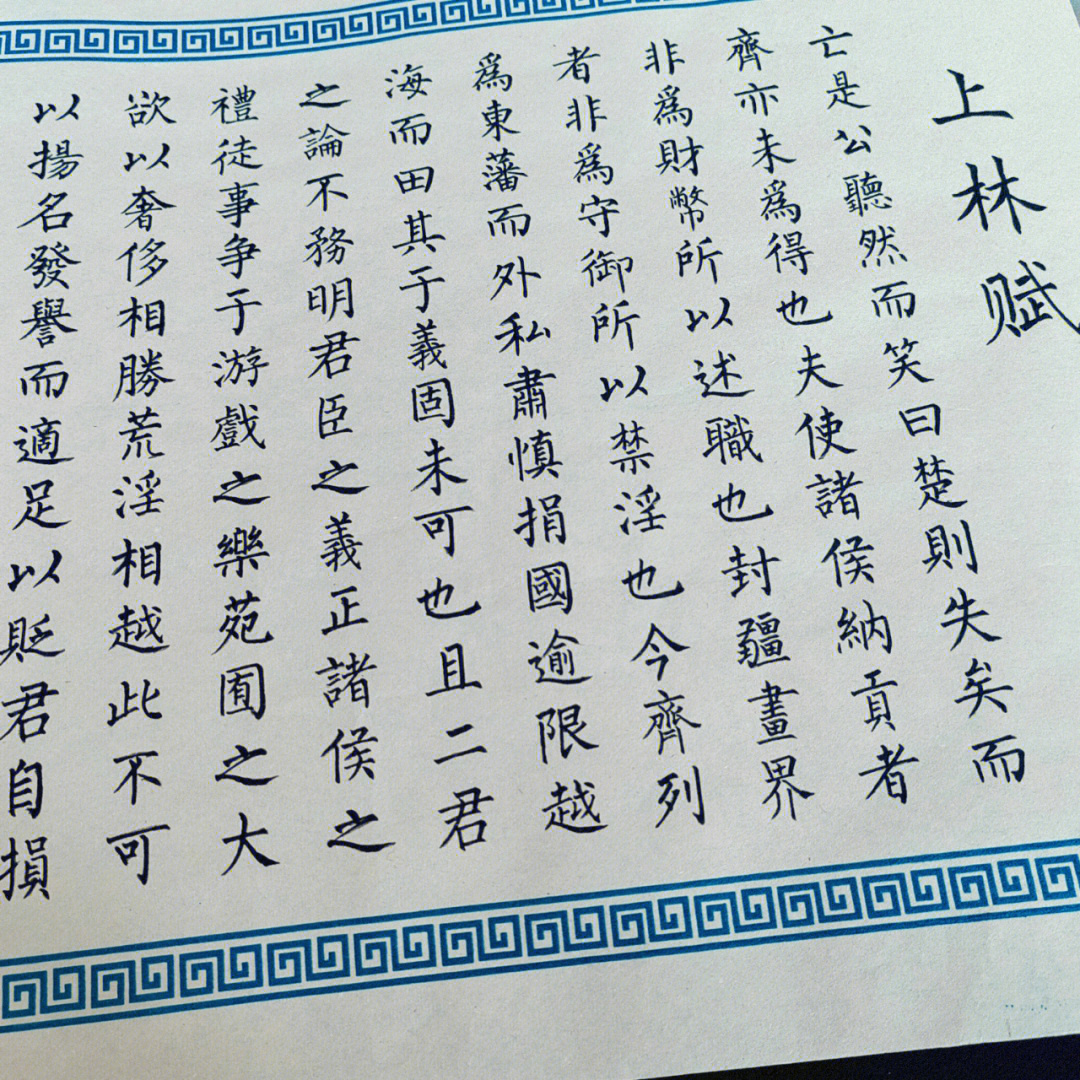 上林赋
亡是公聽然而笑曰楚則失矣而
齊亦未為得也夫使諸侯納貢者
非為財幣所以述職也封疆畫界
者非為守御所以禁淫也今齊列
為東藩而外私肅慎捐國逾限越
海而田其于義固未可也且二君
之論不務明君臣之義正諸侯之
禮徒事争于游戲之樂苑囿之大
欲以奢侈相勝荒淫相越此不可
以揚名發譽而適足以貶君自損